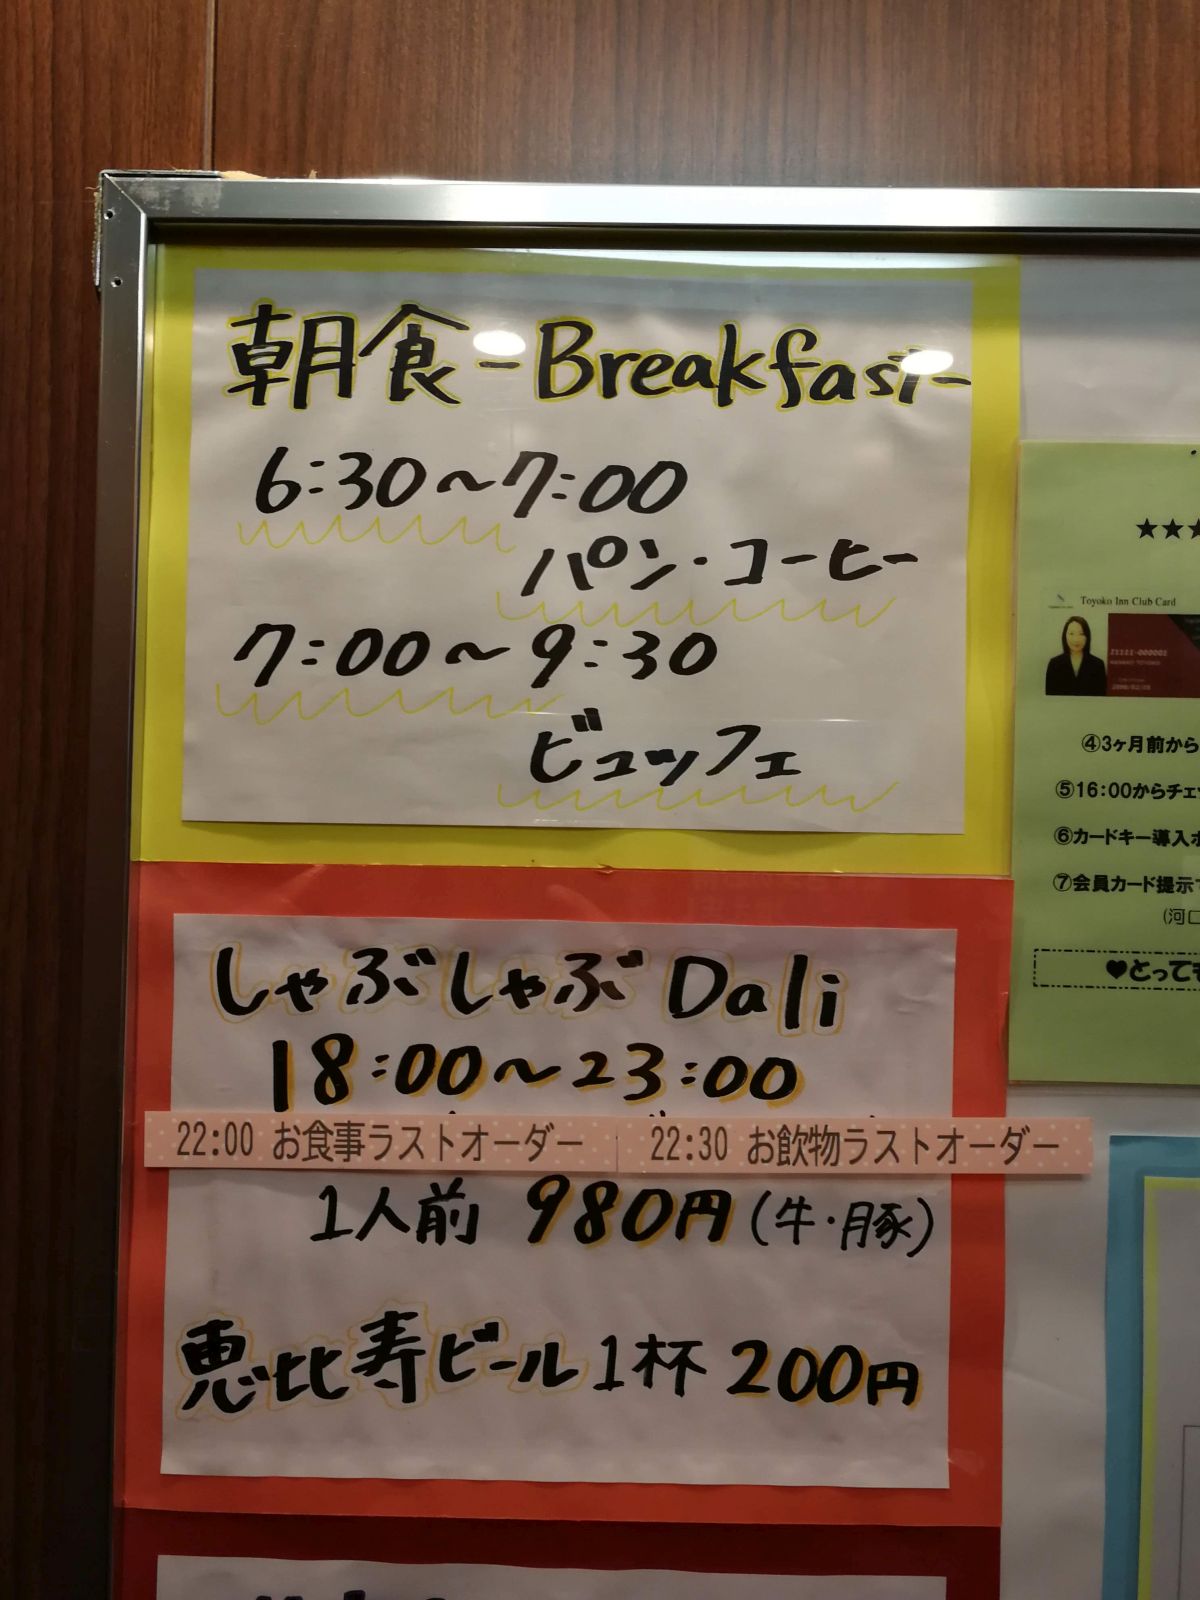 朝食-Breakfast-
6:30～7:00
パン・コーヒー
7:00～9:30
ビュッフェ
しゃぶしゃぶDali
18:00～23:00
22:00 お食事ラストオーダー
22:30 お飲物ラストオーダー
1人前 980円(牛・豚)
恵比寿ビール1杯 200円
★★
Toyoko Inn Club Card
④3ヶ月前から
⑤16:00からチェッ
⑥カードキー導入
⑦会員カード提示
(河口
♥とっても